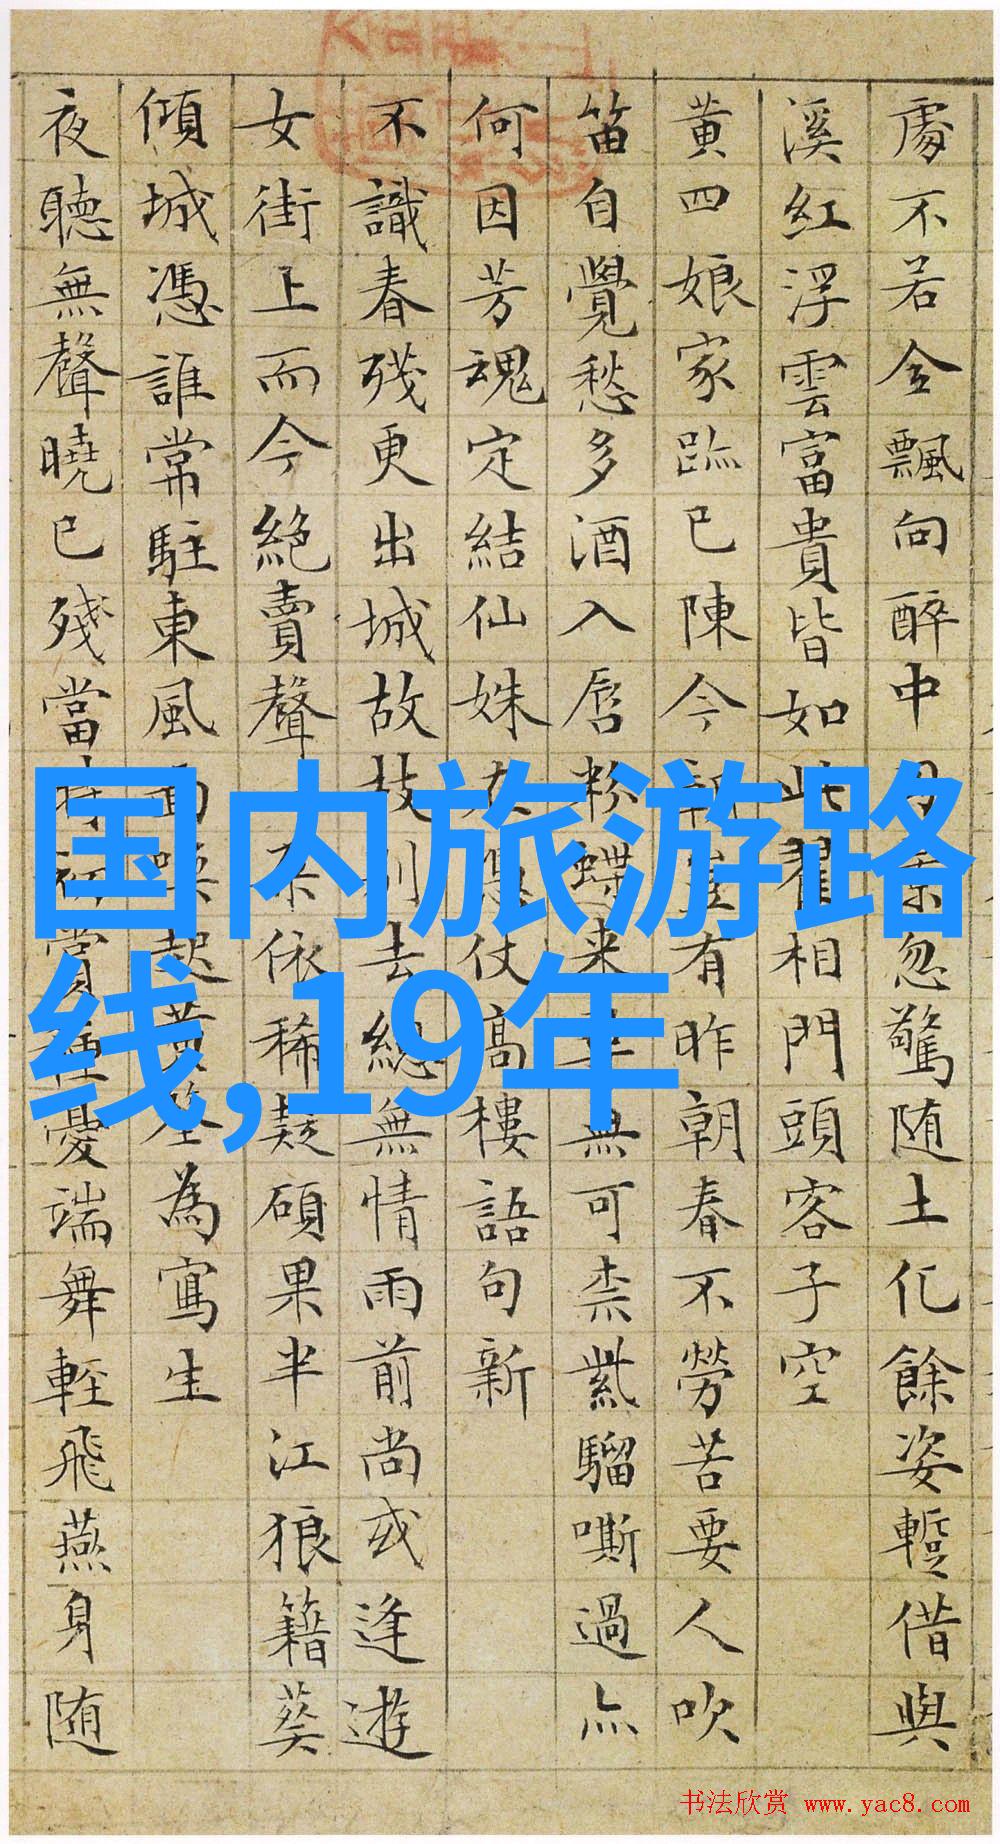 處不若金飄向醉中忽驚随土化餘姿蹔借與
溪紅浮雲富貴皆如此瞿相門頭客子空
黄四娘家跡已陳今豈有昨朝春不勞苦要人吹
笛自覺愁多酒入唇粉蝶来無可柰紫騮嘶過亦
何因芳魂定結仙姝仗高樓語句新
不識春殘更出城故枝別去總無情雨前尚或逢遊
女街上而今絶賣聲依稀疑碩果半江狼籍葵
傾城憑誰常駐東風面喚起黄荃為寫生
夜聽無聲曉已殘當時初賞種憂端舞輕飛燕身随
国内旅游路
线,19年
书法欣赏 www.yac8.com